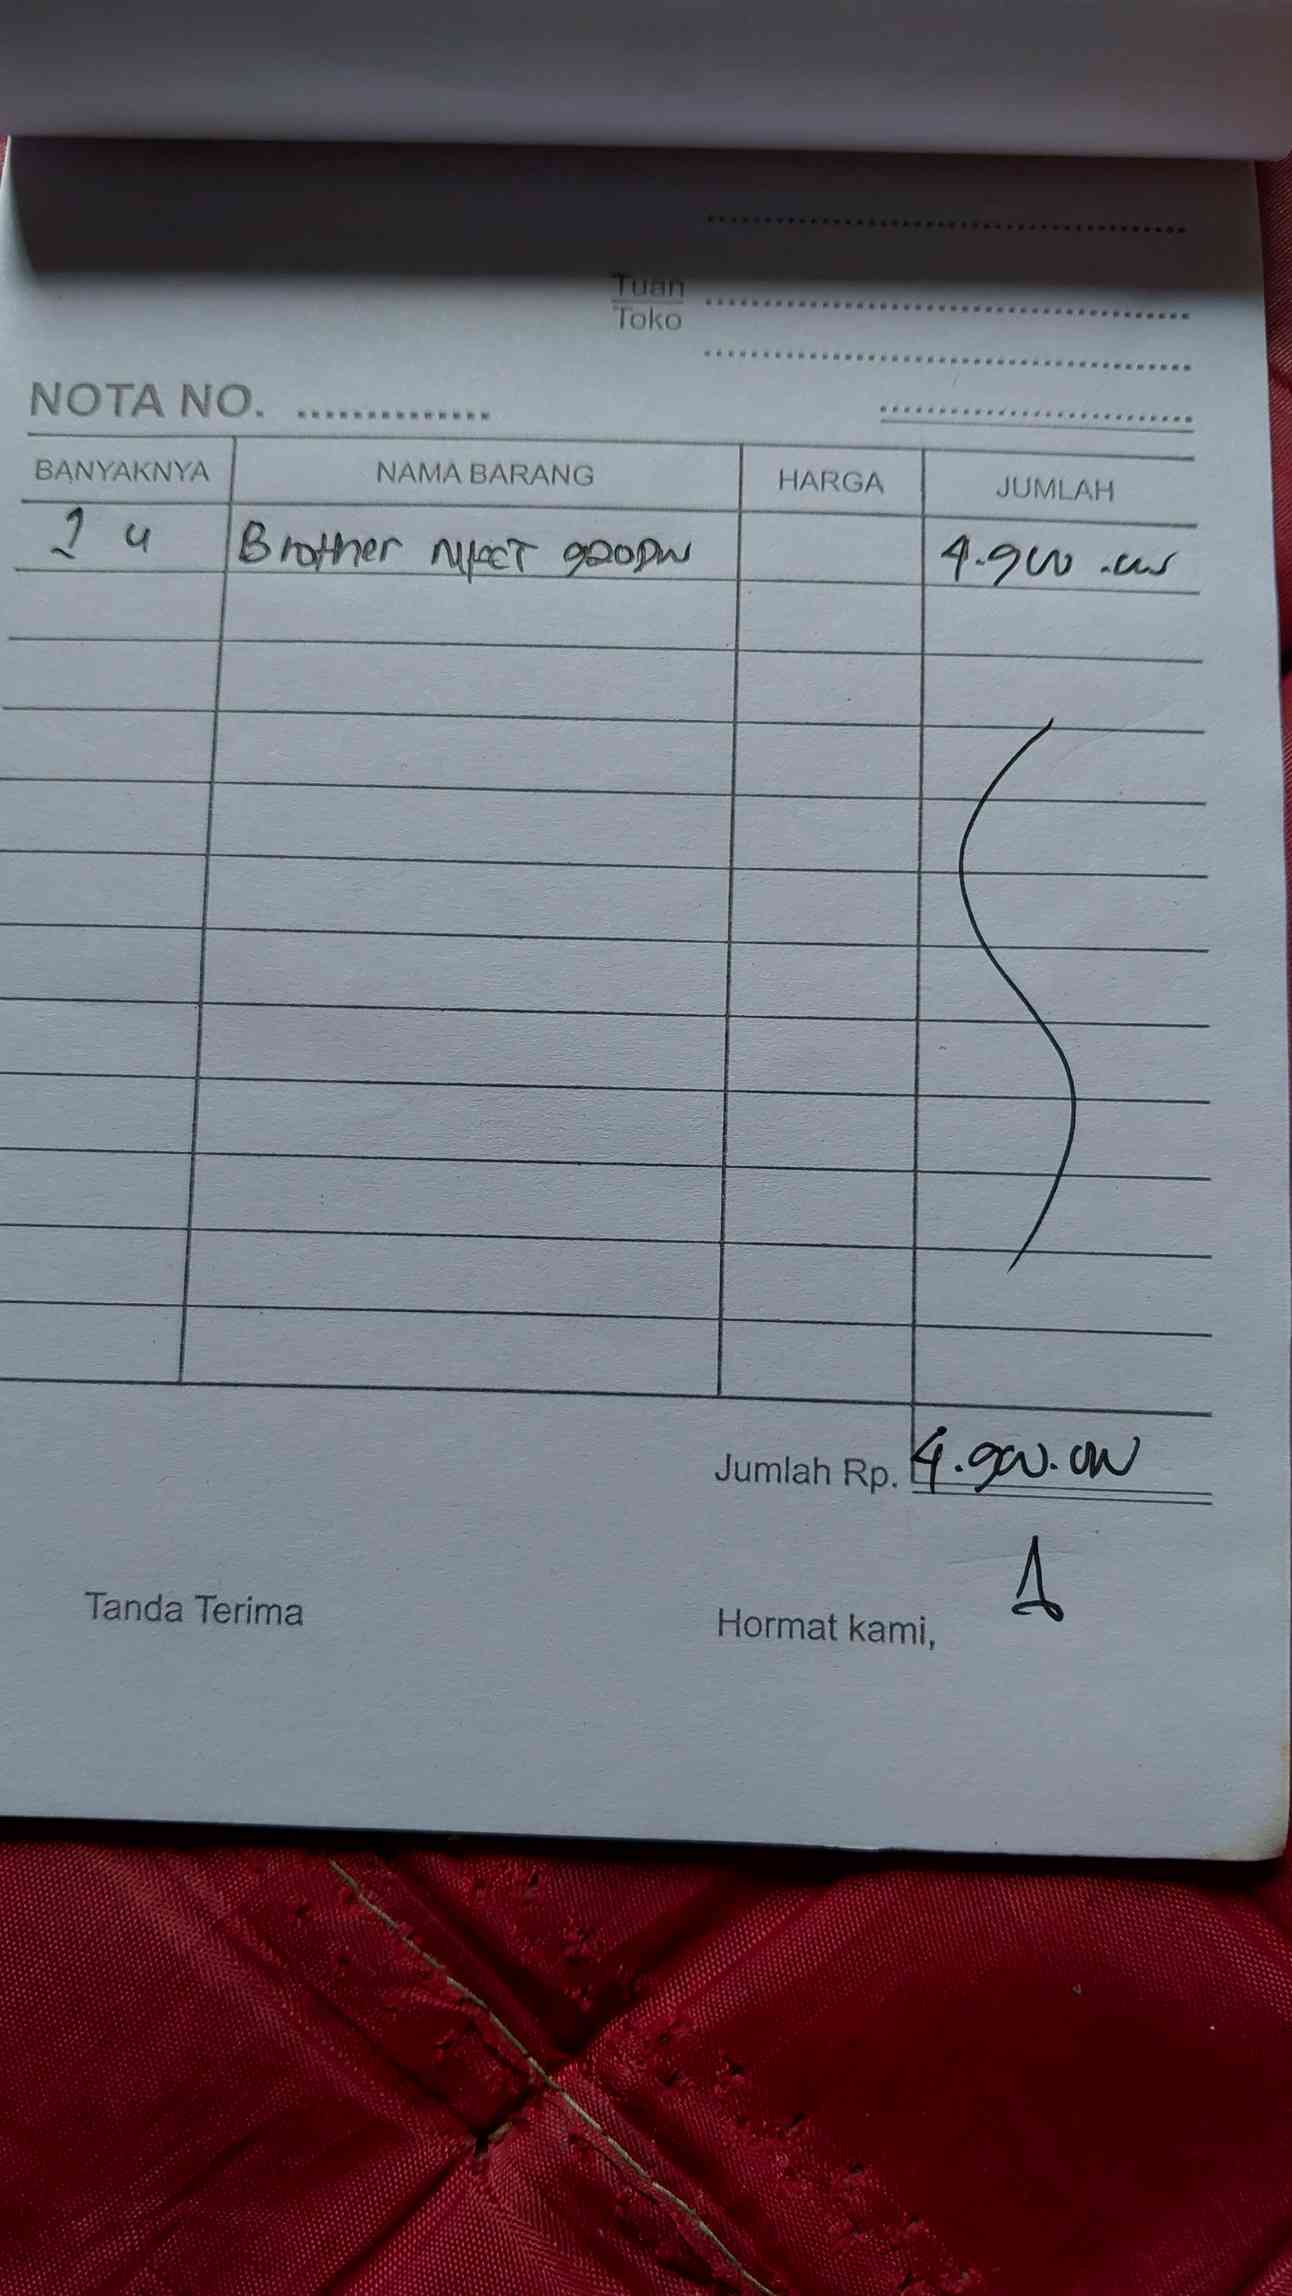 Tuan
Toko
NOTA NO. ..............
BANYAKNYA NAMA BARANG HARGA JUMLAH
1 u Brother 920DW 4.900.000
Jumlah Rp. 4.900.000
Tanda Terima Hormat kami,